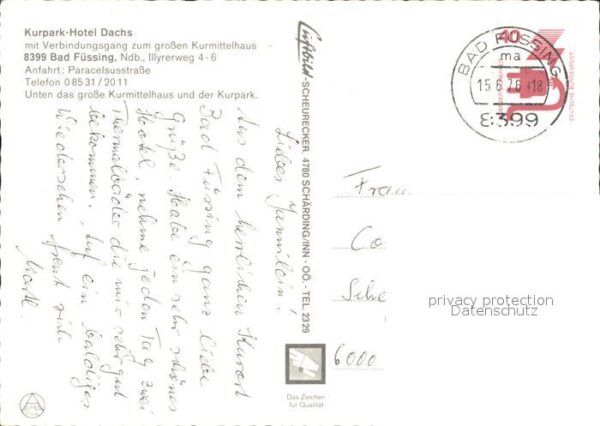 Kurpark-Hotel Dachs
mit Verbindungsgang zum großen Kurmittelhaus
8399 Bad Füssing, Ndb., Illyrerweg 4-6
Anfahrt: Paracelsusstraße
Telefon 08531/2011
Unten das große Kurmittelhaus und der Kurpark.
Luftbild-SCHEURECKER 4780 SCHÄRDING/INN - OÖ - TEL. 2329
Liebes
Aus dem herrlichen Kurort
Bad Füssing ganz liebe
Grüße. Habe ein sehr schönes
Hotel, nehme jeden Tag zwei
Thermalbäder die mir sehr gut
bekommen. Auf ein baldiges
Wiedersehen freut sich
BAD FÜSSING
ma
15.6.76 -18
8399
40
Frau
Co
Sche
6000
privacy protection
Datenschutz
Das Zeichen
für Qualität